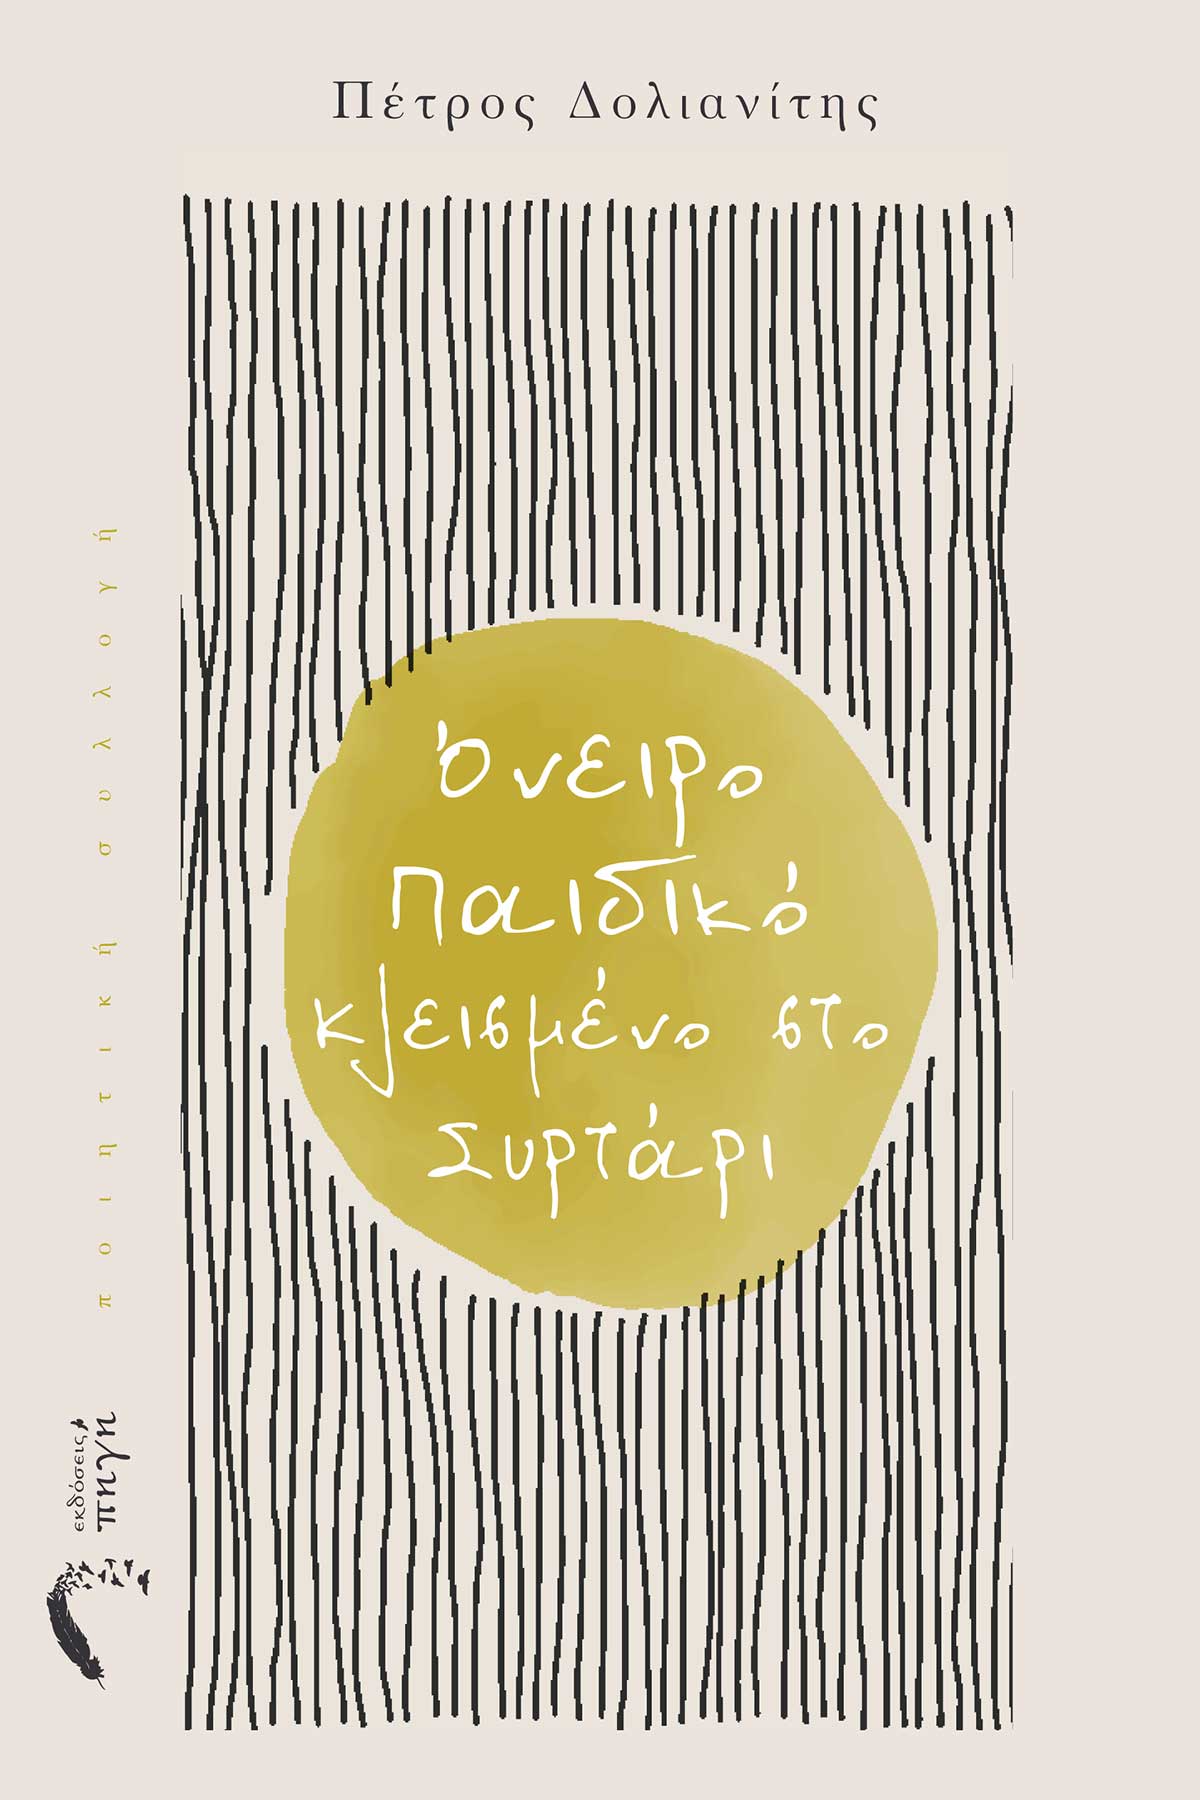 Πέτρος Δολιανίτης
Όνειρο
Παιδικό
κλεισμένο στο
Συρτάρι
ποιητική συλλογή
εκδόσεις
πηγή